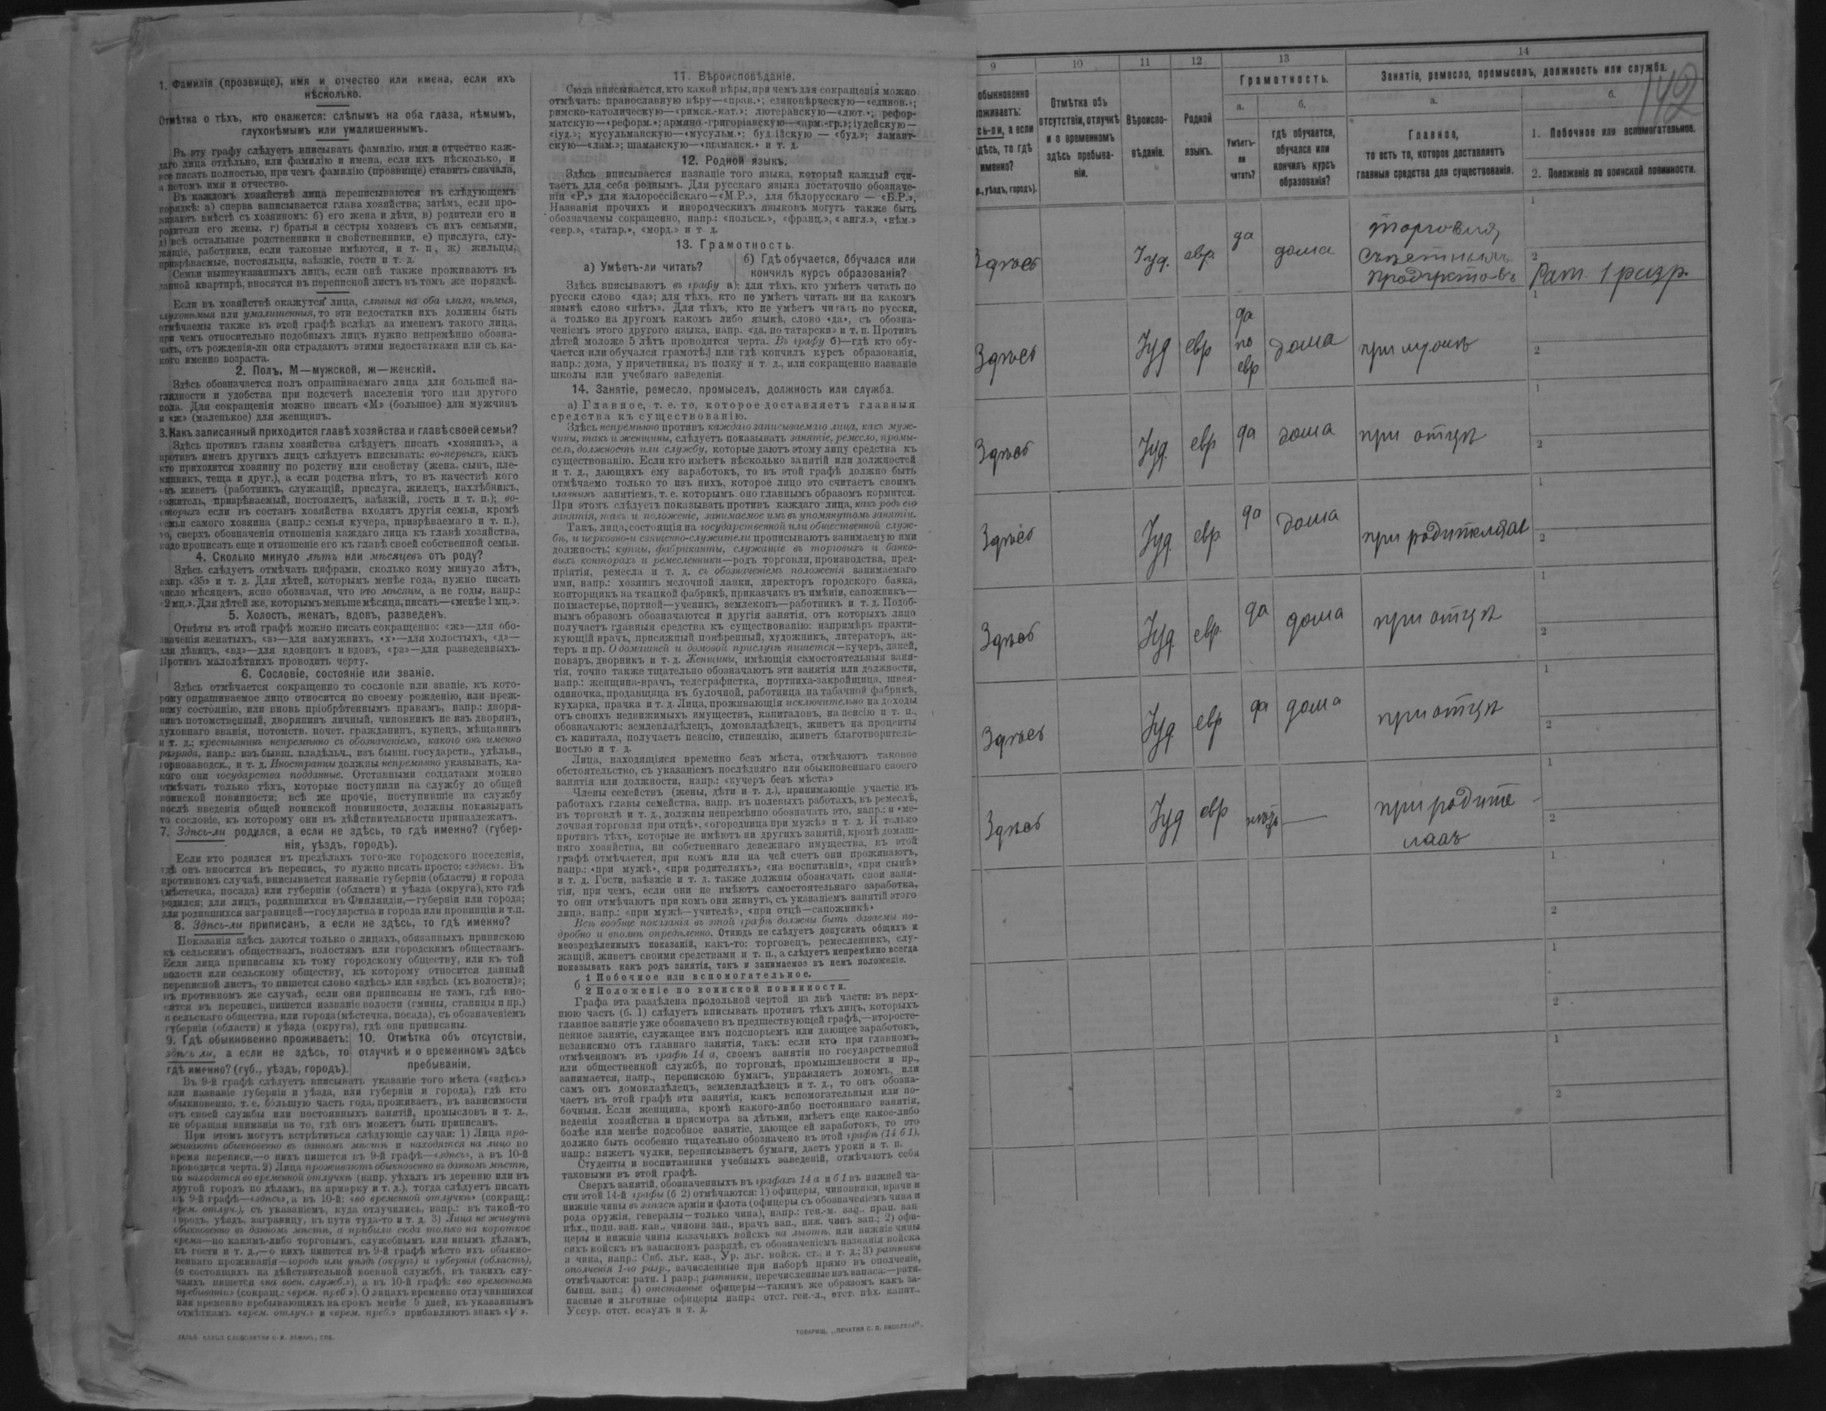 1. Фамилія (прозвище), имя и отчество или имена, если ихъ
нѣсколько.
Отмѣтка о тѣхъ, кто окажется: слѣпымъ на оба глаза, нѣмымъ,
глухонѣмымъ или умалишеннымъ.
Въ эту графу слѣдуетъ вписывать фамилію, имя и отчество каж-
даго лица отдѣльно, или фамилію и имена, если ихъ нѣсколько, и
все писать полностью, при чемъ фамилію (прозвище) ставить сначала,
а потомъ имя и отчество.
Въ каждомъ хозяйствѣ лица переписываются въ слѣдующемъ
порядкѣ: а) сперва записывается глава хозяйства; затѣмъ, если про-
живаютъ вмѣстѣ съ хозяиномъ: б) его жена и дѣти, в) родители его и
родители его жены, г) братья и сестры хозяевъ съ ихъ семьями,
д) всѣ остальные родственники и свойственники, е) прислуга, слу-
жащіе, работники, если таковые имѣются, и т. п., ж) жильцы,
призрѣваемые, постояльцы, заѣзжіе, гости и т. д.
Семьи вышеуказанныхъ лицъ, если онѣ также проживаютъ въ
данной квартирѣ, вносятся въ переписной листъ въ томъ же порядкѣ.
Если въ хозяйствѣ окажутся лица, слѣпыя на оба глаза, нѣмыя,
глухонѣмыя или умалишенныя, то эти недостатки ихъ должны быть
отмѣчаемы также въ этой графѣ вслѣдъ за именемъ такого лица,
при чемъ относительно подобныхъ лицъ нужно непремѣнно обозна-
чать, отъ рожденія-ли они страдаютъ этими недостатками или съ ка-
кого именно возраста.
2. Полъ, М—мужской, ж—женскій.
Здѣсь обозначается полъ опрашиваемаго лица для большей на-
глядности и удобства при подсчетѣ населенія того или другого
пола. Для сокращенія можно писать «М» (большое) для мужчинъ
и «ж» (маленькое) для женщинъ.
3. Какъ записанный приходится главѣ хозяйства и главѣ своей семьи?
Здѣсь противъ главы хозяйства слѣдуетъ писать «хозяинъ», а
противъ именъ другихъ лицъ слѣдуетъ вписывать: во-первыхъ, какъ
кто приходится хозяину по родству или свойству (жена, сынъ, пле-
мянникъ, теща и друг.), а если родства нѣтъ, то въ качествѣ кого
онъ живетъ (работникъ, служащій, прислуга, жилецъ, нахлѣбникъ,
сожитель, призрѣваемый, постоялецъ, заѣзжій, гость и т. п.); во-
вторыхъ если въ составъ хозяйства входятъ другія семьи, кромѣ
семьи самого хозяина (напр: семья кучера, призрѣваемаго и т. п.),
то, сверхъ обозначенія отношенія каждаго лица къ главѣ хозяйства,
надо прописать еще и отношеніе его къ главѣ своей собственной семьи.
4. Сколько минуло лѣтъ или мѣсяцевъ отъ роду?
Здѣсь слѣдуетъ отмѣчать цифрами, сколько кому минуло лѣтъ,
напр. «35» и т. д. Для дѣтей, которымъ менѣе года, нужно писать
число мѣсяцевъ, ясно обозначая, что это мѣсяцы, а не годы, напр.:
«2 мц.». Для дѣтей же, которымъ меньше мѣсяца, писать—«менѣе 1 мц.».
5. Холостъ, женатъ, вдовъ, разведенъ.
Отвѣты въ этой графѣ можно писать сокращенно: «ж»—для обо-
значенія женатыхъ, «з»—для замужнихъ, «х»—для холостыхъ, «д»—
для дѣвицъ, «вд»—для вдовцовъ и вдовъ, «ра»—для разведенныхъ.
Противъ малолѣтнихъ проводить черту.
6. Сословіе, состояніе или званіе.
Здѣсь отмѣчается сокращенно то сословіе или званіе, къ кото-
рому опрашиваемое лицо относится по своему рожденію, или преж-
нему состоянію, или вновь пріобрѣтеннымъ правамъ, напр.: дворя-
нинъ потомственный, дворянинъ личный, чиновникъ не изъ дворянъ,
духовнаго званія, потомств. почет. гражданинъ, купецъ, мѣщанинъ
и т. д.; крестьянинъ непремѣнно съ обозначеніемъ, какого онъ именно
разряда, напр.: изъ бывш. владѣльч., изъ бывш. государств., удѣльн.,
горнозаводск., и т. д. Иностранцы должны непремѣнно указывать, ка-
кого они государства подданные. Отставными солдатами можно
отмѣчать только тѣхъ, которые поступили на службу до общей
воинской повинности; всѣ же прочіе, поступившіе на службу
послѣ введенія общей воинской повинности, должны показывать
то сословіе, къ которому они въ дѣйствительности принадлежатъ.
7. Здѣсь-ли родился, а если не здѣсь, то гдѣ именно? (губер-
нія, уѣздъ, городъ).
Если кто родился въ предѣлахъ того-же городского поселенія,
гдѣ онъ вносится въ перепись, то нужно писать просто: «здѣсь». Въ
противномъ случаѣ, вписывается названіе губерніи (области) и города
(мѣстечка, посада) или губерніи (области) и уѣзда (округа), кто гдѣ
родился; для лицъ, родившихся въ Финляндіи,—губернія или города;
для родившихся заграницей—государства и города или провинціи и т.п.
8. Здѣсь-ли приписанъ, а если не здѣсь, то гдѣ именно?
Показанія здѣсь даются только о лицахъ, обязанныхъ припискою
къ сельскимъ обществамъ, волостямъ или городскимъ обществамъ.
Если лица приписаны къ тому городскому обществу, или къ той
волости или сельскому обществу, къ которому относится данный
переписной листъ, то пишется слово «здѣсь» или «здѣсь (къ волости)»;
въ противномъ же случаѣ, если они приписаны не тамъ, гдѣ вно-
сятся въ перепись, пишется названіе волости (гмины, станицы и пр.)
и сельскаго общества, или города (мѣстечка, посада), съ обозначеніемъ
губерніи (области) и уѣзда (округа), гдѣ они приписаны.
9. Гдѣ обыкновенно проживаетъ:
здѣсь ли, а если не здѣсь, то
гдѣ именно? (губ., уѣздъ, городъ).
10. Отмѣтка объ отсутствіи,
отлучкѣ и о временномъ здѣсь
пребываніи.
Въ 9-й графѣ слѣдуетъ вписывать указаніе того мѣста («здѣсь»
или названіе губерніи и уѣзда, или губерніи и города), гдѣ кто
обыкновенно, т. е. большую часть года, проживаетъ, въ зависимости
отъ своей службы или постоянныхъ занятій, промысловъ и т. д.,
не обращая вниманія на то, гдѣ онъ можетъ быть приписанъ.
При этомъ могутъ встрѣтиться слѣдующіе случаи: 1) Лица про-
живаютъ обыкновенно въ данномъ мѣстѣ и находятся на лицо во
время переписи,—о нихъ пишется въ 9-й графѣ—«здѣсь», а въ 10-й
проводится черта. 2) Лица проживаютъ обыкновенно въ данномъ мѣстѣ,
но находятся во временной отлучкѣ (напр. уѣхалъ въ деревню или въ
другой городъ по дѣламъ, на ярмарку и т. д.), тогда слѣдуетъ писать
въ 9-й графѣ—«здѣсь», а въ 10-й: «во временной отлучкѣ» (сокращ.:
«врем. отлуч.), съ указаніемъ, куда отлучились, напр.: въ такой-то
городъ, уѣздъ, заграницу, въ пути туда-то и т. д. 3) Лица не живутъ
обыкновенно въ данномъ мѣстѣ, а прибыли сюда только на короткое
время—по какимъ-либо торговымъ, служебнымъ или инымъ дѣламъ,
въ гости и т. д.,—о нихъ пишется въ 9-й графѣ мѣсто ихъ обыкно-
веннаго проживанія—городъ или уѣздъ (округъ) и губернія (область),
(о состоящихъ на дѣйствительной военной службѣ, въ такихъ слу-
чаяхъ пишется «на воен. служб.»), а въ 10-й графѣ: «во временномъ
пребываніи» (сокращ.: «врем. преб.»). О лицахъ временно отлучившихся
или временно пребывающихъ на срокъ менѣе 5 дней, къ указаннымъ
отмѣткамъ «врем. отлуч.» и «врем. преб.» прибавляютъ знакъ «V».
11. Вѣроисповѣданіе.
Сюда вписывается, кто какой вѣры, при чемъ для сокращенія можно
отмѣчать: православную вѣру—«прав.»; единовѣрческую—«единов.»;
римско-католическую—«римск.-кат.»; лютеранскую—«лют.»; рефор-
матскую—«реформ.»; армяно-григоріанскую—«арм.-гр.»; іудейскую—
«іуд.»; мусульманскую—«мусульм.»; буддійскую — «буд.»; ламаит-
скую—«лам.»; шаманскую—«шаманск.» и т. д.
12. Родной языкъ.
Здѣсь вписывается названіе того языка, который каждый счи-
таетъ для себя роднымъ. Для русскаго языка достаточно обозначе-
нія «Р.,» для малороссійскаго—«М Р.», для бѣлорусскаго — «Б.Р.»,
Названія прочихъ и инородческихъ языковъ могутъ также быть
обозначаемы сокращенно, напр.: «польск.», «франц.», «англ.», «нѣм.»
«евр.», «татар.», «морд.» и т. д.
13. Грамотность.
а) Умѣетъ-ли читать?
б) Гдѣ обучается, обучался или
кончилъ курсъ образованія?
Здѣсь вписываютъ въ графу а): для тѣхъ, кто умѣетъ читать по
русски слово «да»; для тѣхъ, кто не умѣетъ читать ни на какомъ
языкѣ слово «нѣтъ». Для тѣхъ, кто не умѣетъ читать по русски,
а только на другомъ какомъ либо языкѣ, слово «да», съ обозна-
ченіемъ этого другого языка, напр. «да, по татарски» и т. п. Противъ
дѣтей моложе 5 лѣтъ проводится черта. Въ графу б)—гдѣ кто обу-
чается или обучался грамотѣ, или гдѣ кончилъ курсъ образованія,
напр.: дома, у причетника, въ полку и т. д., или сокращенно названіе
школы или учебнаго заведенія.
14. Занятіе, ремесло, промыселъ, должность или служба.
а) Главное, т. е. то, которое доставляетъ главныя
средства къ существованію.
Здѣсь непремѣнно противъ каждаго записываемаго лица, какъ муж-
чины, такъ и женщины, слѣдуетъ показывать занятіе, ремесло, промы-
селъ, должность или службу, которые даютъ этому лицу средства къ
существованію. Если кто имѣетъ нѣсколько занятій или должностей
и т. д., дающихъ ему заработокъ, то въ этой графѣ должно быть
отмѣчаемо только то изъ нихъ, которое лицо это считаетъ своимъ
главнымъ занятіемъ, т. е. которымъ оно главнымъ образомъ кормится.
При этомъ слѣдуетъ показывать противъ каждаго лица, какъ родъ его
занятія, такъ и положеніе, занимаемое имъ въ упомянутомъ занятіи.
Такъ, лица, состоящія на государственной или общественной служ-
бѣ, и церковно-и священно-служители прописываютъ занимаемую ими
должность; купцы, фабриканты, служащіе въ торговыхъ и банко-
выхъ конторахъ и ремесленники—родъ торговли, производства, пред-
пріятія, ремесла и т. д. съ обозначеніемъ положенія занимаемаго
ими, напр.: хозяинъ мелочной лавки, директоръ городского банка,
конторщикъ на ткацкой фабрикѣ, приказчикъ въ имѣніи, сапожникъ—
подмастерье, портной—ученикъ, землекопъ—работникъ и т. д. Подоб-
нымъ образомъ обозначаются и другія занятія, отъ которыхъ лицо
получаетъ главныя средства къ существованію: напримѣръ практи-
кующій врачъ, присяжный повѣренный, художникъ, литераторъ, ак-
теръ и пр. О домашней и домовой прислугѣ пишется—кучеръ, лакей,
поваръ, дворникъ и т. д. Женщины, имѣющія самостоятельныя заня-
тія, точно также тщательно обозначаютъ эти занятія или должности,
напр.: женщина-врачъ, телеграфистка, портниха-закройщица, швея-
одиночка, продавщица въ булочной, работница на табачной фабрикѣ,
кухарка, прачка и т. д. Лица, проживающія исключительно на доходы
отъ своихъ недвижимыхъ имуществъ, капиталовъ, на пенсію и т. п.,
обозначаютъ: землевладѣлецъ, домовладѣлецъ, живетъ на проценты
съ капитала, получаетъ пенсію, стипендію, живетъ благотворитель-
ностью и т. д.
Лица, находящіяся временно безъ мѣста, отмѣчаютъ таковое
обстоятельство, съ указаніемъ послѣдняго или обыкновеннаго своего
занятія или должности, напр.: «кучеръ безъ мѣста»
Члены семействъ (жены, дѣти и т. д.), принимающіе участіе въ
работахъ главы семейства, напр. въ полевыхъ работахъ, въ ремеслѣ,
въ торговлѣ и т. д., должны непремѣнно обозначать это, напр.: «ме-
лочная торговля при отцѣ», «огородница при мужѣ» и т. д. И только
противъ тѣхъ, которые не имѣютъ ни другихъ занятій, кромѣ домаш-
няго хозяйства, ни собственнаго денежнаго имущества, въ этой
графѣ отмѣчается, при комъ или на чей счетъ они проживаютъ,
напр.: «при мужѣ», «при родителяхъ», «на воспитаніи», «при сынѣ»
и т. д. Гости, заѣзжіе и т. д. также должны обозначать свои заня-
тія, при чемъ, если они не имѣютъ самостоятельнаго заработка,
то они отмѣчаютъ при комъ они живутъ, съ указаніемъ занятій этого
лица, напр.: «при мужѣ—учителѣ», «при отцѣ—сапожникѣ»
Всѣ вообще показанія въ этой графѣ должны быть даваемы по-
дробно и вполнѣ опредѣленно. Отнюдь не слѣдуетъ допускать общихъ и
неопредѣленныхъ показаній, какъ-то: торговецъ, ремесленникъ, слу-
жащій, живетъ своими средствами и т. п., а слѣдуетъ непремѣнно всегда
показывать какъ родъ занятія, такъ и занимаемое въ немъ положеніе.
б
1 Побочное или вспомогательное.
2 Положеніе по воинской повинности.
Графа эта раздѣлена продольной чертой на двѣ части: въ верх-
нюю часть (б. 1) слѣдуетъ вписывать противъ тѣхъ лицъ, которыхъ
главное занятіе уже обозначено въ предшествующей графѣ,—второсте-
пенное занятіе, служащее имъ подспорьемъ или дающее заработокъ,
независимо отъ главнаго занятія, такъ: если кто при главномъ,
отмѣченномъ въ графѣ 14 а, своемъ занятіи по государственной
или общественной службѣ, по торговлѣ, промышленности и пр.,
занимается, напр., перепискою бумагъ, управляетъ домомъ, или
самъ онъ домовладѣлецъ, землевладѣлецъ и т. д., то онъ обозна-
чаетъ въ этой графѣ эти занятія, какъ вспомогательныя или по-
бочныя. Если женщина, кромѣ какого-либо постояннаго занятія,
веденія хозяйства и присмотра за дѣтьми, имѣетъ еще какое-либо
болѣе или менѣе подсобное занятіе, дающее ей заработокъ, то это
должно быть особенно тщательно обозначено въ этой графѣ (14 б 1),
напр.: вяжетъ чулки, переписываетъ бумаги, даетъ уроки и т. п.
Студенты и воспитанники учебныхъ заведеній, отмѣчаютъ себя
таковыми въ этой графѣ.
Сверхъ занятій, обозначенныхъ въ графахъ 14 а и б 1 въ нижней ча-
сти этой 14-й графы (б 2) отмѣчаются: 1) офицеры, чиновники, врачи и
нижніе чины въ запасѣ арміи и флота (офицеры съ обозначеніемъ чина и
рода оружія, генералы—только чина), напр.: ген.-м. зап., прап. зап
пѣх., подп. зап. кав., чиновн зап., врачъ зап., ниж. чинъ зап.; 2) офи-
церы и нижніе чины казачьихъ войскъ на льготѣ, или нижніе чины
сихъ войскъ въ запасномъ разрядѣ, съ обозначеніемъ названія войска
и чина, напр.: Сиб. льг. каз., Ур. льг. войск. ст., и т. д.; 3) ратники
ополченія 1-го разр., зачисленные при наборѣ прямо въ ополченіе,
отмѣчаются: ратн. 1 разр.; ратники, перечисленные изъ запаса:—ратн.
бывш. зап.; 4) отставные офицеры—такимъ же образомъ какъ за-
пасные и льготные офицеры напр.: отст. ген.-л., отст. пѣх. капит.,
Уссур. отст. есаулъ и т. д.
142
9 10 11 12 13 14
обыкновенно
роживаетъ:
сь-ли, а если
здѣсь, то гдѣ
именно?
уѣздъ, городъ).
Отмѣтка объ
отсутствіи, отлучкѣ
и о временномъ
здѣсь пребыва-
ніи.
Вѣроиспо-
вѣданіе.
Родной
языкъ.
Грамотность.
а.
Умѣетъ-
ли
читать?
б.
гдѣ обучается,
обучался или
кончилъ курсъ
образованія?
Занятіе, ремесло, промыселъ, должность или служба.
а.
Главное,
то есть то, которое доставляетъ
главныя средства для существованія.
б.
1. Побочное или вспомогательное.
2. Положеніе по воинской повинности.
Здѣсь Іуд. евр. да дома торговля
съѣстными
продуктовъ
1
2 Рат. 1 разр.
Здѣсь Іуд евр да
по
евр
дома при мужѣ
1
2
Здѣсь Іуд. евр да дома при отцѣ
1
2
Здѣсь Іуд. евр да дома при родителяхъ
1
2
Здѣсь Іуд. евр. да дома при отцѣ
1
2
Здѣсь Іуд. евр да дома при отцѣ
1
2
Здѣсь Іуд евр нѣтъ — при родите-
ляхъ
1
2
1
2
1
2
1
2